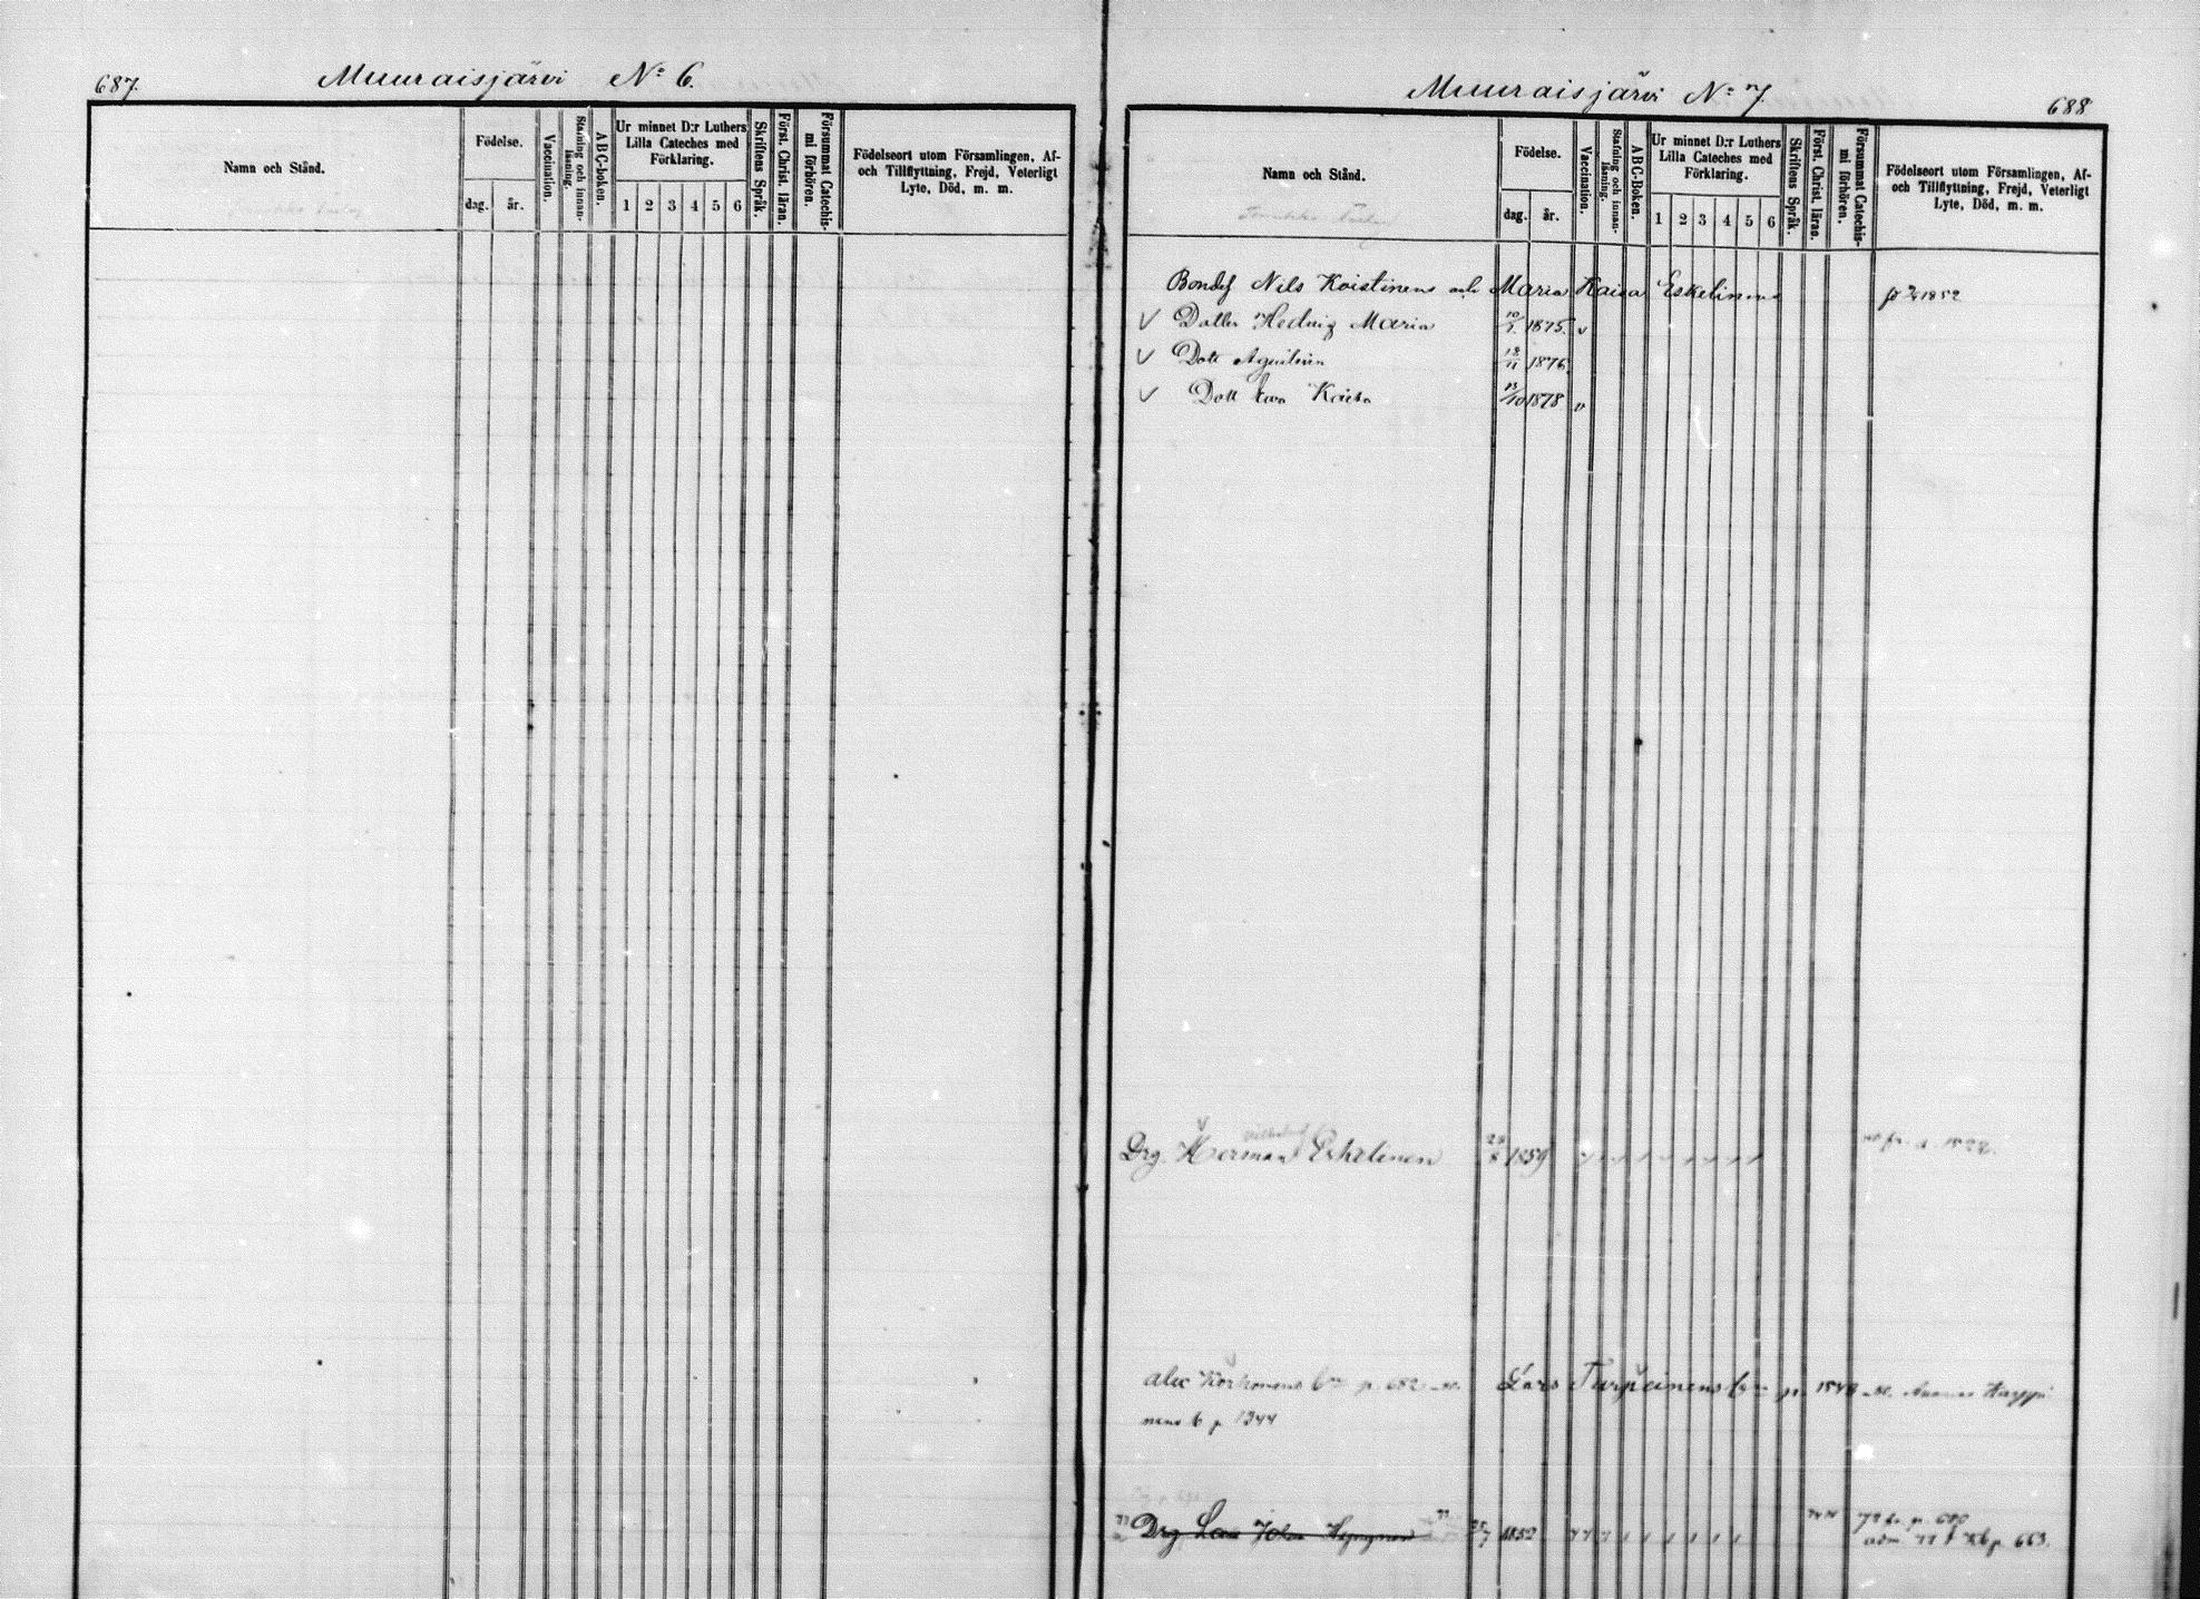 687. Muuraisjärvi No 6.
Namn och Stånd.
Födelse.
dag. år.
Vaccination.
Stafning och innan-
läsning.
ABC-boken.
Ur minnet D:r Luthers
Lilla Cateches med
Förklaring.
1 2 3 4 5 6
Skriftens Språk.
Först. Christ. läran.
Försummat Catechis-
mi förhören.
Födelseort utom Församlingen, Af-
och Tillflyttning, Frejd, Veterligt
Lyte, Död, m. m.
Muuraisjärvi No 7. 688
Namn och Stånd.
Födelse.
dag. år.
Vaccination.
Stafning och innan-
läsning.
ABC-Boken.
Ur minnet D:r Luthers
Lilla Cateches med
Förklaring.
1 2 3 4 5 6
Skriftens Språk.
Först. Christ. läran.
Försummat Catechis-
mi förhören.
Födelseort utom Församlingen, Af-
och Tillflyttning, Frejd, Veterligt
Lyte, Död, m. m.
Nils Koistinens och Maria Kaisa Eskelinens 1852
v Hedvig Maria 10/7 1875. v
v Dott 1876
v Dott Eva Kaisa 13/10 1878 v
Drg Herman Eskelinen 1859
Alex Korhonens p. 682 Lars Turpeinens
nens b p 1344
Drg Lars Johan 1852
p. 653.